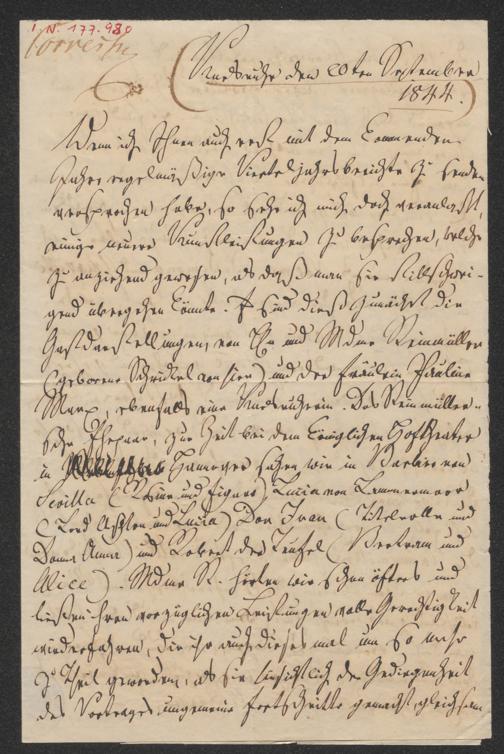 I. N. 177.980
(Karlsruhe den 20ten September
1844.)
Wenn ich Ihnen auch erst mit dem kommenden
Jahre regelmäßige Vierteljahrsberichte zu senden
versprochen habe, so sehe ich mich doch veranlaßt,
einige neuere Kunstleistungen zu besprechen, welche
zu anziehend gewesen, als daß man sie stillschwei-
gend übergehen könnte. Es sind dieß zunächst die
Gastdarstellungen, von Hrn und Mdme Steinmüller
(geborene Schickel aus Wien) und der Fräulein Pauline
Marx, ebenfalls eine Karlsruherin. Das Steinmüller-
sche Ehepaar, zur Zeit bei dem Königlichen Hoftheater
in Hannover sahen wir in Barbier von
Sevilla (Rosine und Figaro) Lucia von Lammermoor
(Lord Ashton und Lucia) Don Juan (Titelrolle und
Donna Anna) und Robert der Teufel (Bertram und
Alice). Mdme St. hörten wir schon öfters und
ließen ihren vorzüglichen Leistungen volle Gerechtigkeit
wiederfahren, die ihr auch dieses mal um so mehr
zu Theil geworden, als sie hinsichtlich der Gediegenheit
des Vortrages ungemeine Fortschritte gemacht, gleichsam